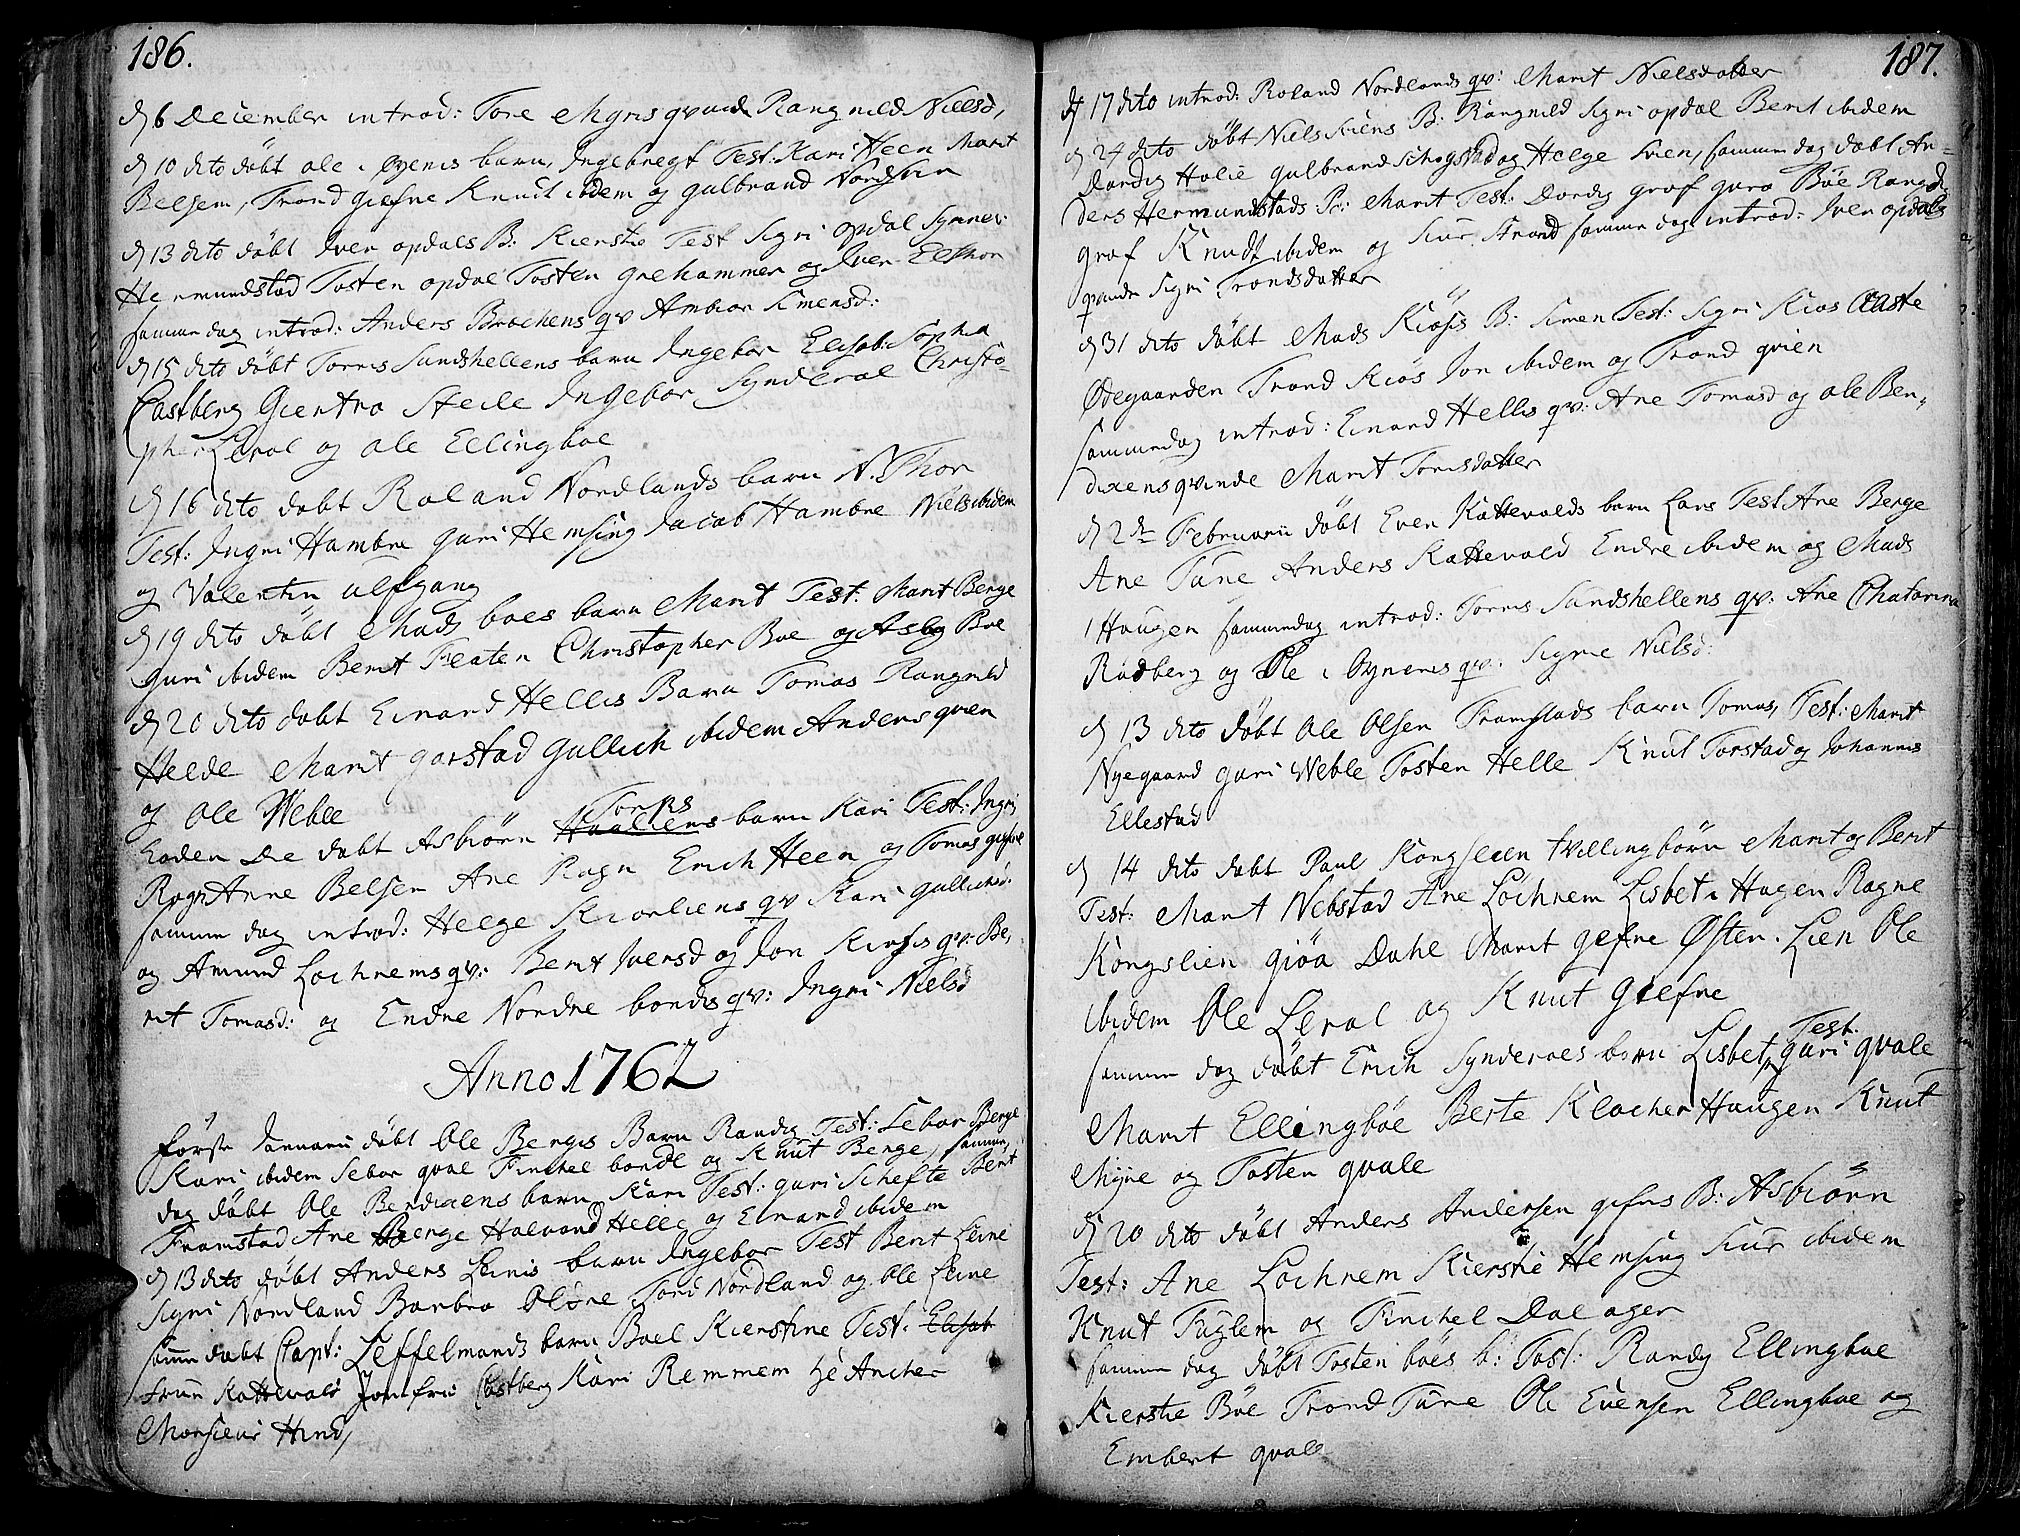 186.
d 6 December introd: Tore Myris qvinde Rangnild Nielsd,
d 10 dito döbt Ole i Öyenis barn, Ingebregt Test: Kari Heen Marit
Belsem, Trond Giefne Knud ibidem og Gulbrand Nordsvin
d 13 dito döbt Iver Opdals B: Kierstie Test Sigri Opdal Synnev:
Hermundstad Tosten Opdal Tosten Grehammer og Iver Elthon
samme dag introd: Anders Brochens qv Ambior Simensd:
d 15 dito döbt Torris Sundshellens barn Ingebor Elisab: Sopha
Castberg Giertro Steile Ingebor Synderal Christo-
pher Leral og Ole Ellingboe
d 16 dito döbt Roland Nordlands barn N. Thor
Test: Ingri Hambre Guri Hemsing Jacob Hambre Niels ibidem
og Valentin Ulfgang
d 19 dito döbt Mads boes barn Marit Test: Marit Berge
Guri ibidem Berit Flaten Christopher Boe og Asleg Boe
d 20 dito döbt Einard Hellis Barn Tomas Rangnild
Helde Marit Garstad Gullich ibidem Anders qvien
og Ole Weble
Torps
Eodem Die döbt Asbiörn Haaliens barn Kari Test: Ingri
Rogn Anne Belsem Ane Rogn Erich Heen og Tomas Giefne
samme dag introd: Helge Kiorliens qv Kari Gullichsd:
og Amund Lochrems qv: Berit Iversd og Jon Kiosis qv: Be,
rit Tomasd: og Endre Nordre bondis qv: Ingri Nielsd
Anno 1762
förste Januarii döbt Ole Bergis Barn Randig Test: Sebor Berge
Kari ibidem Sebor qval Finchel bonde og Knut Berge, samme,
dag döbt Ole Bendixens barn Kari Test: Guri Schefte Berit
Framstad Ane Berge Halvord Helle og Einard ibidem
d 13 dito döbt Anders Leinis barn Ingebor Test Berit Leine
Sigri Nordland Barbro Olöre Tord Nordland og Ole Leine
samme döbt Capt: Leffelmands barn Boel Kierstine Test: Elisab
Frue Kattevold Jomfru Castberg Kari Remmem Hr Ancher
Monsieur Hind,
187.
d 17 dito introd: Roland Nordlands qv: Marit Nielsdatter
d 24 dito döbt Niels Sviens B: Rangnild Sigri Opdal Berit ibidem
Dordig Holie Gulbrand Schogstad og Helge Svien, samme dag döbt An-
ders Hermundstads B: Marit Test: Dordig Grof Guro Böe Rangdi
Grof Knudt ibidem og Siur Strand samme dag introd: Iver Opdals
qvinde Sigri Trondsdatter
d 31 dito döbt Mads Kiösis B: Simen Test: Sigri Kiös Aaste
Ödegaarden Trond Kiös Jon ibidem og Trond qvien
Sammedag introd: Einard Hellis qv: Ane Tomasd og Ole Ben,
dixens qvinde Marit Torrisdatter
d 2den Februarii döbt Even Kattevolds barn Lars Test Ane Berge
Ane Tune Anders Kattevold Endre ibidem og Mads
i Haugen Sammedag introd: Torris Sundshellens qv: Ane Chatarina
Rodberg og Ole i Öynenis qv: Signe Nielsd:
d 13 dito döbt Ole Olsen Framstads barn Tomas, Test: Marit
Nyegaard Guri Weble Tosten Helle Knut Torstad og Johannis
Ellestad
d 14 dito döbt Paul Kongslien tvillingbörn Marit og Berit
Test: Marit Nebstad Ane Lochrem Lisbet i Hagen Ragne
Kongslien Giöa Dahl Marit Gefne Östen Lien Ole
ibidem Ole Leral og Knut Giefne
Test.
samme dag döbt Erich Synderaes barn Lisbet, Guri qvale
Marit Ellingböe Berte Klocher Haugen Knut
Myre og Tosten qvale
d 20 dito döbt Anders Andersen Gefnes B: Asbiörn
Test: Ane Lochrem Kierstie Hemsing Siur ibidem
Knut Fuglem og Finchel Dalager
samme dag döbt Tosten böes b: Test: Randig Ellingboe
Kierstie Böe Trond Tune Ole Evensen Ellingboe og
Embert qvale